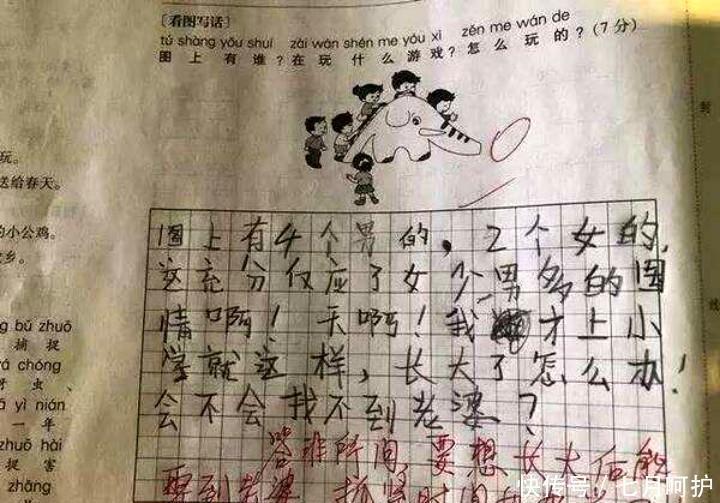 ［看图写话］
tú shàng yǒu shuí zài wán shén me yóu xì zěn me wán de
图上有谁？在玩什么游戏？怎么玩的？(7分)
玩。
送给春天。
的小公鸡。
乡。
bǔ zhuō
捕捉
chóng
虫、
yì nián
一年
zhuō hài
捉害
zhǎng
图上有4个男的，2个女的，
这充分仅应了女少男多的国
情啊！天啊！我才上小
学就这样，长大了怎么办！
会不会找不到老婆？
答非所问，要想长大后能
娶到老婆
时间
快传号／七月呵护